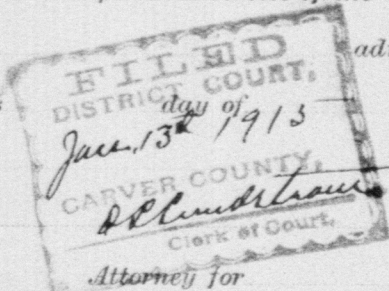 adi
FILED
DISTRICT COURT,
day of
Jan. 13th 1913
CARVER COUNTY,
Clerk of Court.
Attorney for